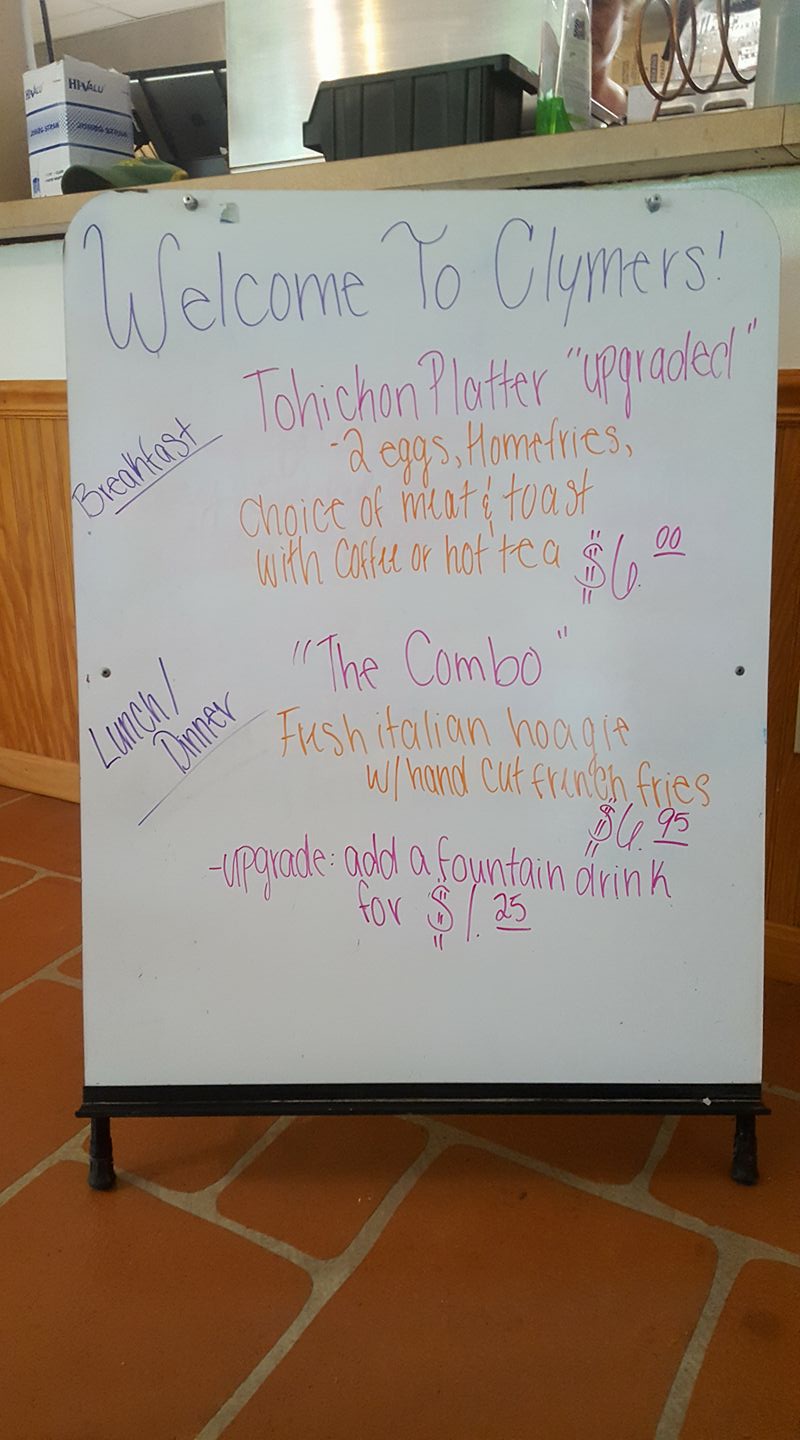 HiVALU
HiVALU
Welcome To Clymers!
Breakfast
Tohichon Platter "upgraded"
-2 eggs, Homefries,
choice of meat & toast
with coffee or hot tea $6.00
Lunch/
Dinner
"The Combo"
Fresh italian hoagie
w/hand cut french fries
$6.95
-upgrade: add a fountain drink
for $1.25